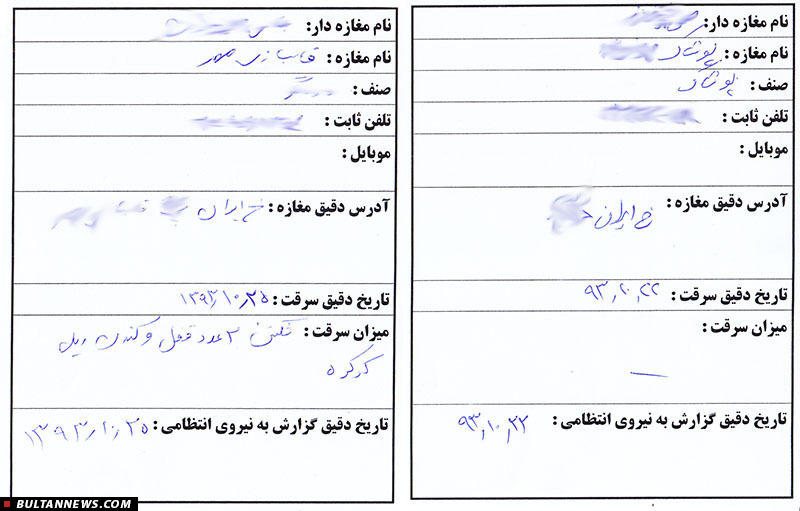 نام مغازه دار:
نام مغازه : پوشاک
صنف : پوشاک
تلفن ثابت :
موبایل :
آدرس دقیق مغازه : خ ایران
تاریخ دقیق سرقت : ۹۳,۱۰,۲۲
میزان سرقت : —
تاریخ دقیق گزارش به نیروی انتظامی : ۹۳,۱۰,۲۲
نام مغازه دار:
نام مغازه :
صنف :
تلفن ثابت :
موبایل :
آدرس دقیق مغازه : خ ایران
تاریخ دقیق سرقت : ۱۳۹۳,۱۰,۲۵
میزان سرقت : شکستن ۲ عدد قفل و کندن ریل
کرکره
تاریخ دقیق گزارش به نیروی انتظامی : ۱۳۹۳,۱۰,۲۵
BULTANNEWS.COM